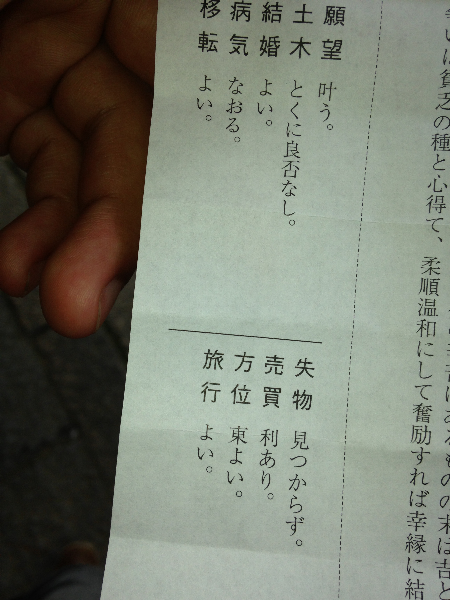 幸いは貧乏の種と心得て、
末は吉と
柔順温和にして奮励すれば幸縁に結
願望 叶う。
土木 とくに良否なし。
結婚 よい。
病気 なおる。
移転 よい。
失物 見つからず。
売買 利あり。
方位 東よい。
旅行 よい。